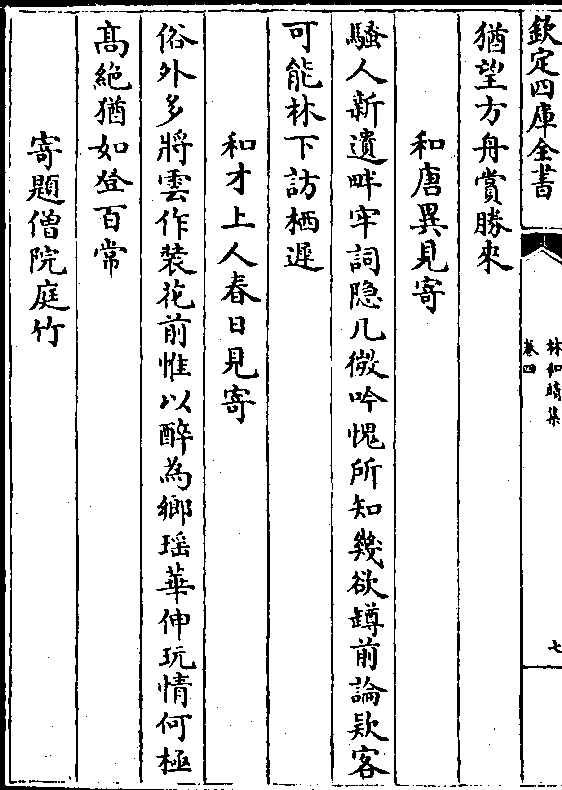 欽定四庫全書
林和靖集
卷四
七
猶望方舟賞勝來
和唐異見寄
騷人新遺畔牢詞隐几微吟愧所知幾欲罇前論欵客
可能林下訪栖遲
和才上人春日見寄
俗外多將雲作裝花前惟以醉為鄉瑶華伸玩情何極
髙絶猶如登百常
寄題僧院庭竹